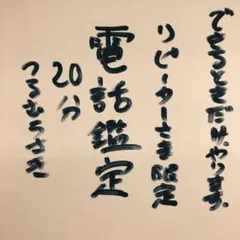 できるときだけ、やります。
リピーターさま限定
電話鑑定
20分
つるむらさき